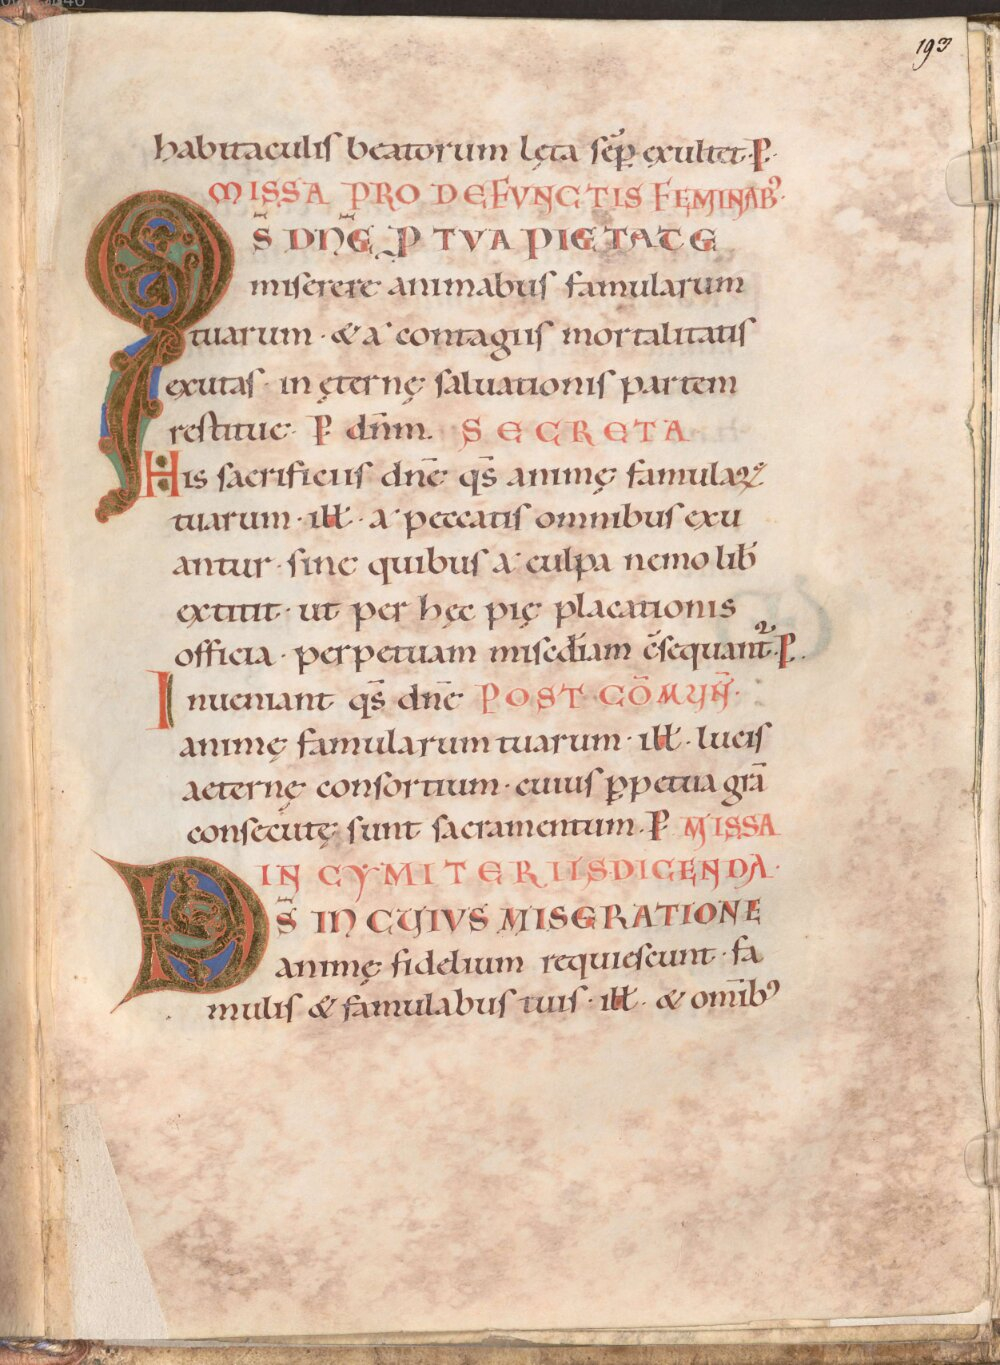 193
habitaculis beatorum lęta sēp exultet· P·
MISSA PRO DEFUNCTIS FEMINABꝰ·
QS̄ DN̄E P TVA PIETATE
miserere animabus famularum
tuarum· & a contagiis mortalitatis
exutas· in ęternę saluationis partem
restitue· P· dn̄m. SECRETA
His sacrificiis dn̄e qs̄ animę famulaꝝ
tuarum· ill̄· a peccatis omnibus exu
antur· sine quibus a culpa nemo lib̄
extitit· ut per hęc pię placationis
officia· perpetuam mised̄iam c̄sequant᷑· P·
Inueniant qs̄ dn̄e POST CŌMVN̄·
animę famularum tuarum· ill̄· lucis
aeternę consortium· cuius ꝑpetua grā
consecutę sunt sacramentum· P· MISSA
IN CYMITERIIS DICENDA·
DS̄ IN CUIVS MISERATIONE
animę fidelium requiescunt· fa
mulis & famulabus tuis· ill̄· & om̄ibꝰ